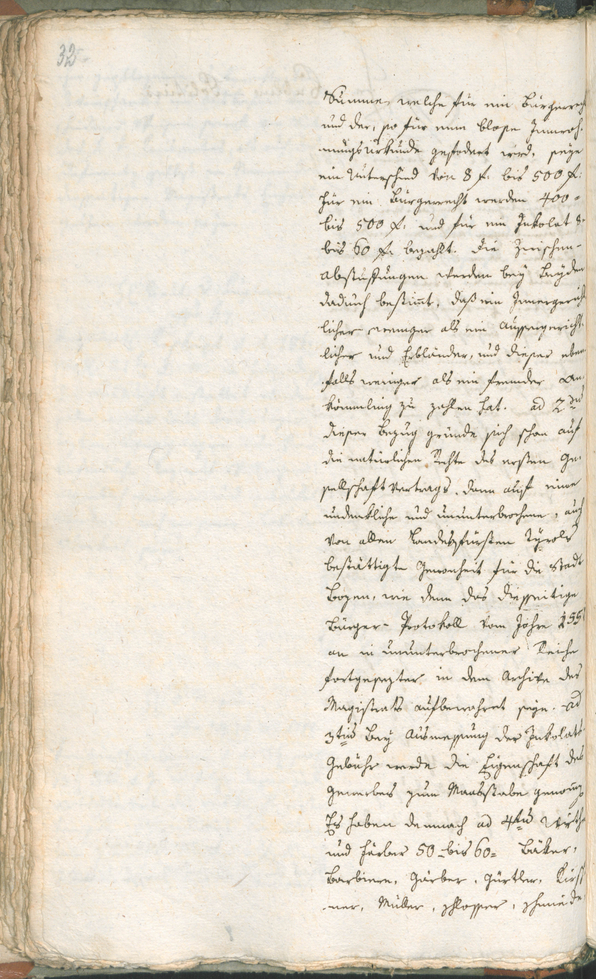 32
Summe, welche für ein Bürgerrecht
und der, so für eine blose Inwoh-
nungsurkunde gefodert wird, seye
ein Unterschied von 8 f. bis 500 f.
für ein Bürgerrecht werden 400 -
bis 500 f. und für ein Inkolat 8
bis 60 f. bezahlt. Die Zwischen-
abstuffungen werden bey Beyden
dadurch bestimt, daß ein Innergericht
licher weniger als ein Aussergericht-
licher und Erbländer, und dieser eben
falls weniger als ein fremder An-
kömmling zu zahlen hat. ad 2dum
dieser Bezug gründe sich schon auf
die natürlichen Rechte des ersten Ge-
sellschaftvertrags, dann auf eine
undenkliche und ununterbrochene, auch
von allen Landesfürsten Tyrols
bestättigte Gewonheit für die Stadt
Bozen, wie denn das diesseitige
Bürger-Protokoll vom Jahre 155
an in ununterbrochener Reihe
fortgesezter in dem Archive des
Magistrats aufbewahret seye. ad
3tium Bey Ausmessung der Inkolats
Gebühr werde die Eigenschaft des
Gewerbes zum Maasstabe genomen
Es haben demnach ad 4tum Wirthe
und Färber 50 bis 60= Bäker,
Barbiere, Gärber, Gürtler, Kirsch
-ner, Müller, Schlosser, Schmiede